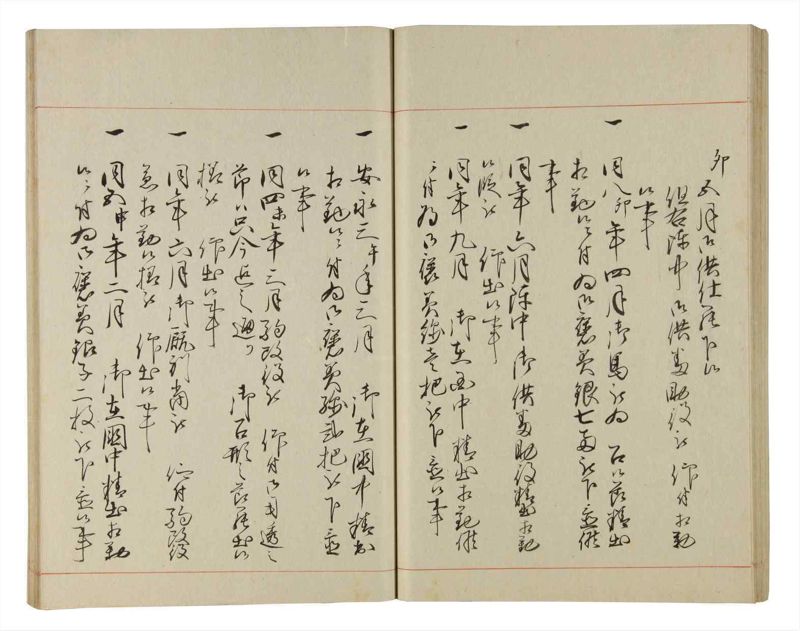 卯五月御供仕罷下候
組合陳中御供番助役被 仰付相勤
候事
一 同八卯年四月御馬被為 召候節精出
相勤候ニ付為御褒美銀七両被下置候
事
一 同年六月陳中御供番助役精出相勤
候段被 仰出候事
一 同年九月 御在国中精出相勤候
ニ付為御褒美綿壱把被下置候事
一 安永三午年三月 御在国中精出
相勤候ニ付為御褒美綿弐把被下置
候事
一 同四未年三月駒改役被 仰付御透之
節ハ只今迄之通り 御召形之節罷出候
様被 仰出候事
一 同年六月御厩別当被 仰付駒改役
兼相勤候様被 仰出候事
一 同五申年二月 御在国中精出相勤
候ニ付為御褒美銀子二枚被下置候事